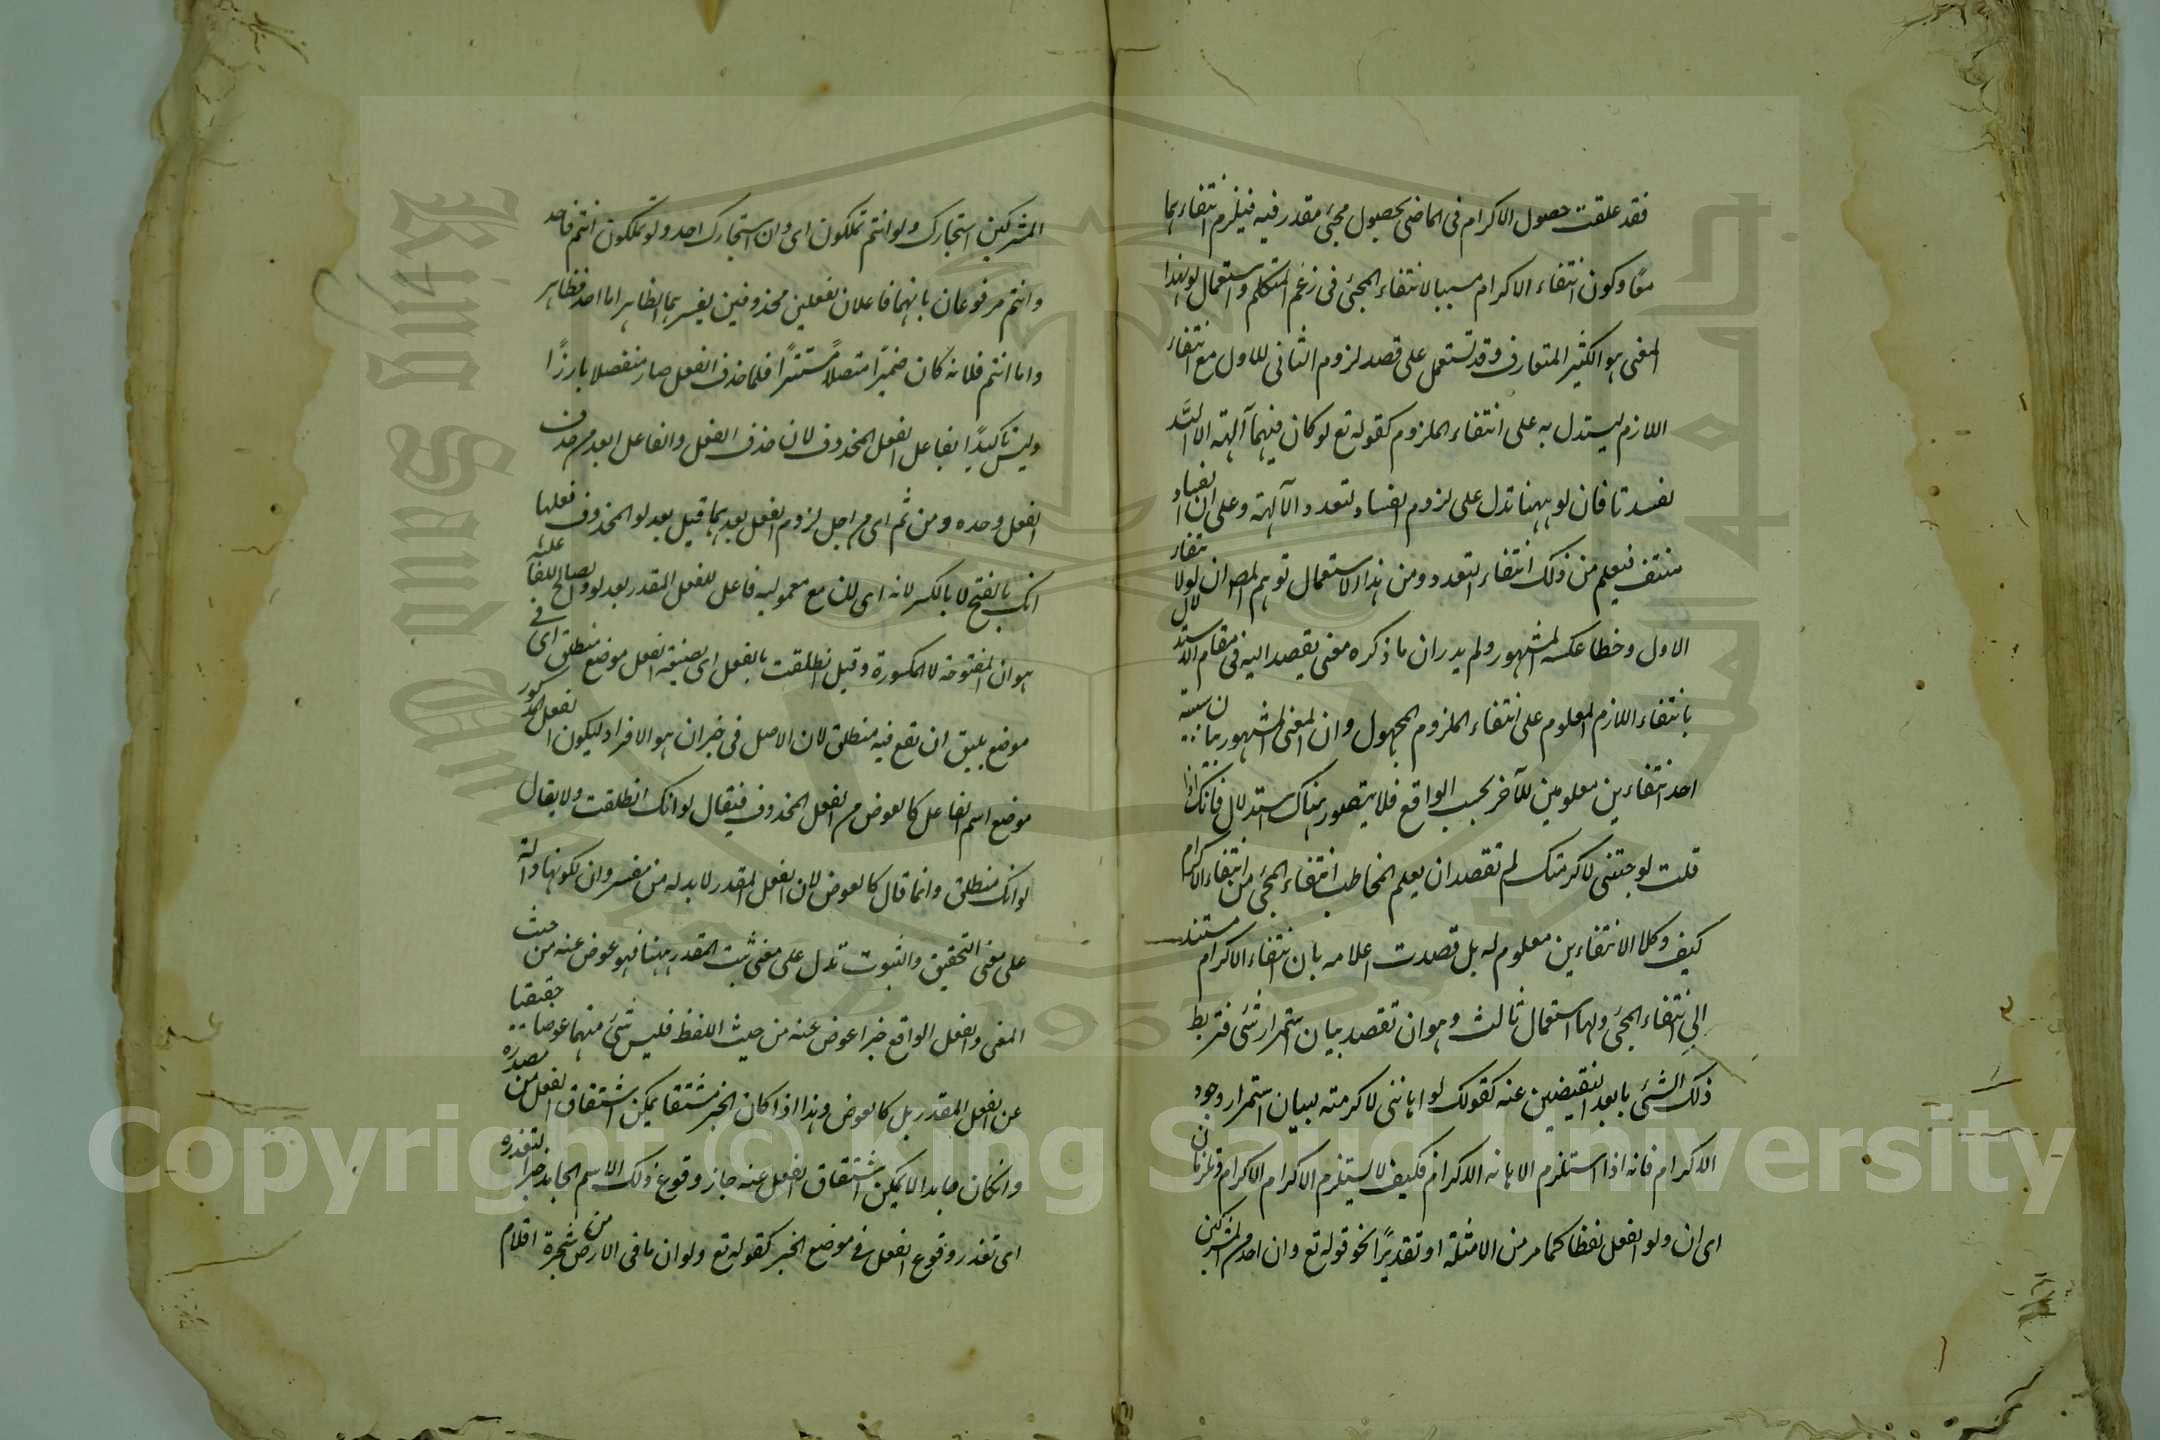 فقد علقت حصول الاكرام فى الماضى بحصول مجئ مقدر فيه فيلزم انتفاءهما
معًا وكون انتفاء الاكرام مسببا لانتفاء المجئ فى زعم المتكلم واستعمال لو بهذا
المعنى هو الكثير المتعارف وقد تستعمل على قصد لزوم الثانى للاول مع انتفاء
اللازم ليستدل به على انتفاء الملزوم كقوله تع لو كان فيهما آلهة الا الله
لفسدتا فان لو ههنا تدل على لزوم الفساد لتعدد الآلهة وعلى ان الفساد
منتف فيعلم من ذلك انتفاء التعدد ومن هذا الاستعمال توهم المص ان لو لانتفاء
الاول وخطا عكسه المشهور ولم يدر ان ما ذكره معنى يقصد اليه فى مقام الاستدلال
بانتفاء اللازم المعلوم على انتفاء الملزوم المجهول وان المعنى المشهور بيان سببية
احد انتفاءين معلومين للآخر بحسب الواقع فلا يتصور هناك استدلال فانك اذا
قلت لو جئتنى لاكرمتك لم تقصد ان يعلم المخاطب انتفاء المجئ من انتفاء الاكرام
كيف وكلا الانتفاءين معلوم له بل قصدت اعلامه بان انتفاء الاكرام مستند
الى انتفاء المجئ ولها استعمال ثالث وهو ان تقصد بيان استمرار شئ فتربط
ذلك الشئ بابعد النقيضين عنه كقولك لو اهاننى لاكرمته لبيان استمرار وجود
الاكرام فانه اذا استلزم الاهانة الاكرام فكيف لا يستلزم الاكرام الاكرام وتلزمان
اى ان ولو الفعل لفظا كما مر من الامثلة او تقديرًا نحو قوله تع وان احد من المشركين
المشركين استجارك ولو انتم تملكون اى وان استجارك احد ولو تملكون انتم فاحد
وانتم مرفوعان بانهما فاعلان لفعلين محذوفين يفسرهما الظاهر اما احد فظاهر
واما انتم فلانه كان ضميرًا متصلاً مستترًا فلما حذف الفعل صار منفصلا بارزًا
وليس تاكيدًا لفاعل الفعل المحذوف لان حذف الفعل والفاعل ابعد من حذف
الفعل وحده ومن ثم اى من اجل لزوم الفعل بعدهما قيل بعد لو المحذوف فعلها
انك بالفتح لا بالكسر لانه اى لان مع معموليه فاعل للفعل المقدر بعد لو والصالح للفاعلية
هو ان المفتوحة لا المكسورة وقيل انطلقت بالفعل اى بصيغة الفعل موضع منطلق اى فى
موضع يليق ان تقع فيه منطلق لان الاصل فى خبر ان هو الافراد ليكون الفعل المذكور
موضع اسم الفاعل كالعوض من الفعل المحذوف فيقال لو انك انطلقت ولا يقال
لو انك منطلق وانما قال كالعوض لان الفعل المقدر لا بد له من مفسر وان لكونها دالة
على معنى التحقيق والثبوت تدل على معنى ثبت المقدر ههنا فهو عوض عنه من حيث
المعنى والفعل الواقع خبرا عوض عنه من حيث اللفظ فليس شئ منهما عوضا حقيقيا
عن الفعل المقدر بل كالعوض وهذا اذا كان الخبر مشتقا يمكن اشتقاق الفعل من مصدره
وان كان جامدا لا يمكن اشتقاق الفعل عنه جاز وقوع ذلك الاسم الجامد خبرا لتعذره
اى تعذر وقوع الفعل فى موضع الخبر كقوله تع ولو ان ما فى الارض من شجرة اقلام
Copyright © King Saud University